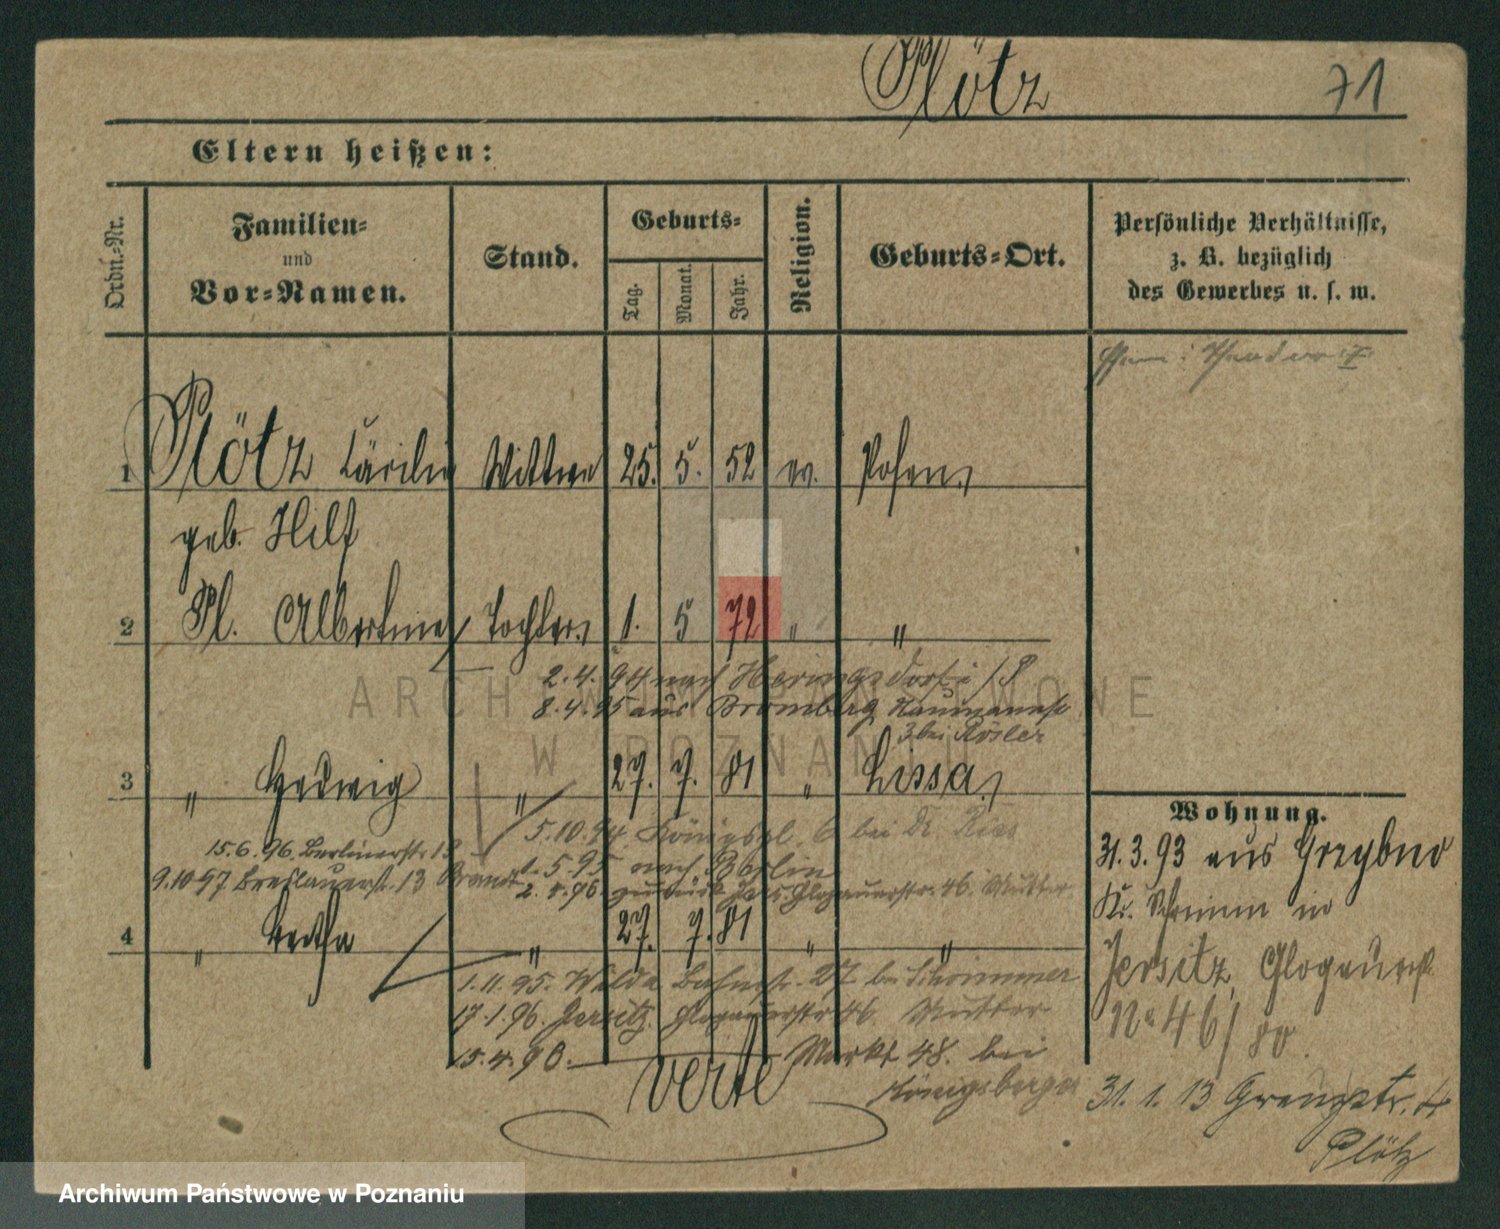 Plötz 71
Eltern heißen:
Ordn.-Nr. Familien- und Vor-Namen. Stand. Geburts- Tag. Monat. Jahr. Religion. Geburts-Ort. Persönliche Verhältnisse, z. B. bezüglich des Gewerbes u. s. w.
1 Plötz Cäcilie Wittwe 25. 5. 52 ev. Posen
geb. Hilf
2 Pl. Albertine Tochter 1. 5 72 " "
2.4.94 nach Heringsdorf i/P
8.4.95 aus Bromberg
3 bei Rösler
3 " Hedwig " 27. 7. 81 " Lissa
5.10.94. Königspl. 6 bei Dr.
15.6.96. Berlinerstr. 13
1.5.95 nach Berlin
9.10.97 Breslauerstr. 13 Brandt
2.4.96 zurück Jers. Glogauerstr. 46. Mutter
4 " Bertha " 27. 7. 81 " "
1.11.95. Wilda Bahnstr. 27 bei
17.1.96. Jersitz. Glogauerstr 46. Mutter
15.4.90. — Markt 48. bei
Königsberger
verte
Wohnung.
31.3.93 aus
Kr. Schrimm in
Jersitz, Glogauerst.
No 46/
31.1.13 Grenzstr. 4
Plötz
ARCHIWUM PAŃSTWOWE
W POZNANIU
Archiwum Państwowe w Poznaniu